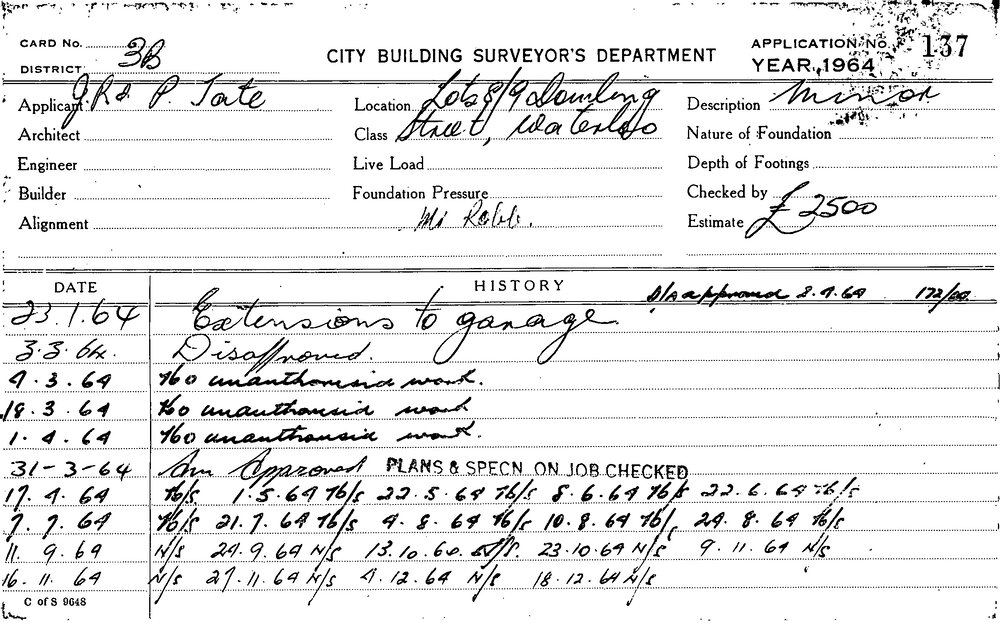 CARD No. CITY BUILDING SURVEYOR'S DEPARTMENT APPLICATION No. 137
DISTRICT 3B YEAR, 1964
Applicant J.R & P. Tate Location Lots 8/9 Dowling Description Minor
Architect Class Street, Waterloo Nature of Foundation
Engineer Live Load Depth of Footings
Builder Foundation Pressure Checked by
Alignment Mr Robb. Estimate £ 2500
DATE HISTORY D/A approved 8.4.64
23.1.64 Extensions to garage.
3.3.64. Disapproved.
9.3.64 No unauthorised work.
18.3.64 No unauthorised work
1.4.64 No unauthorised work.
31-3-64 Am Approved PLANS & SPECN ON JOB CHECKED
17.4.64 N/s 1.5.64 N/s 22.5.64 N/s 8.6.64 N/s 22.6.64 N/s
7.7.64 N/s 21.7.64 N/s 4.8.64 N/s 10.8.64 N/s 24.8.64 N/s
11.9.64 N/s 24.9.64 N/s 13.10.64 N/s 23.10.64 N/s 9.11.64 N/s
16.11.64 N/s 27.11.64 N/s 4.12.64 N/s 18.12.64 N/s
C of S 9648